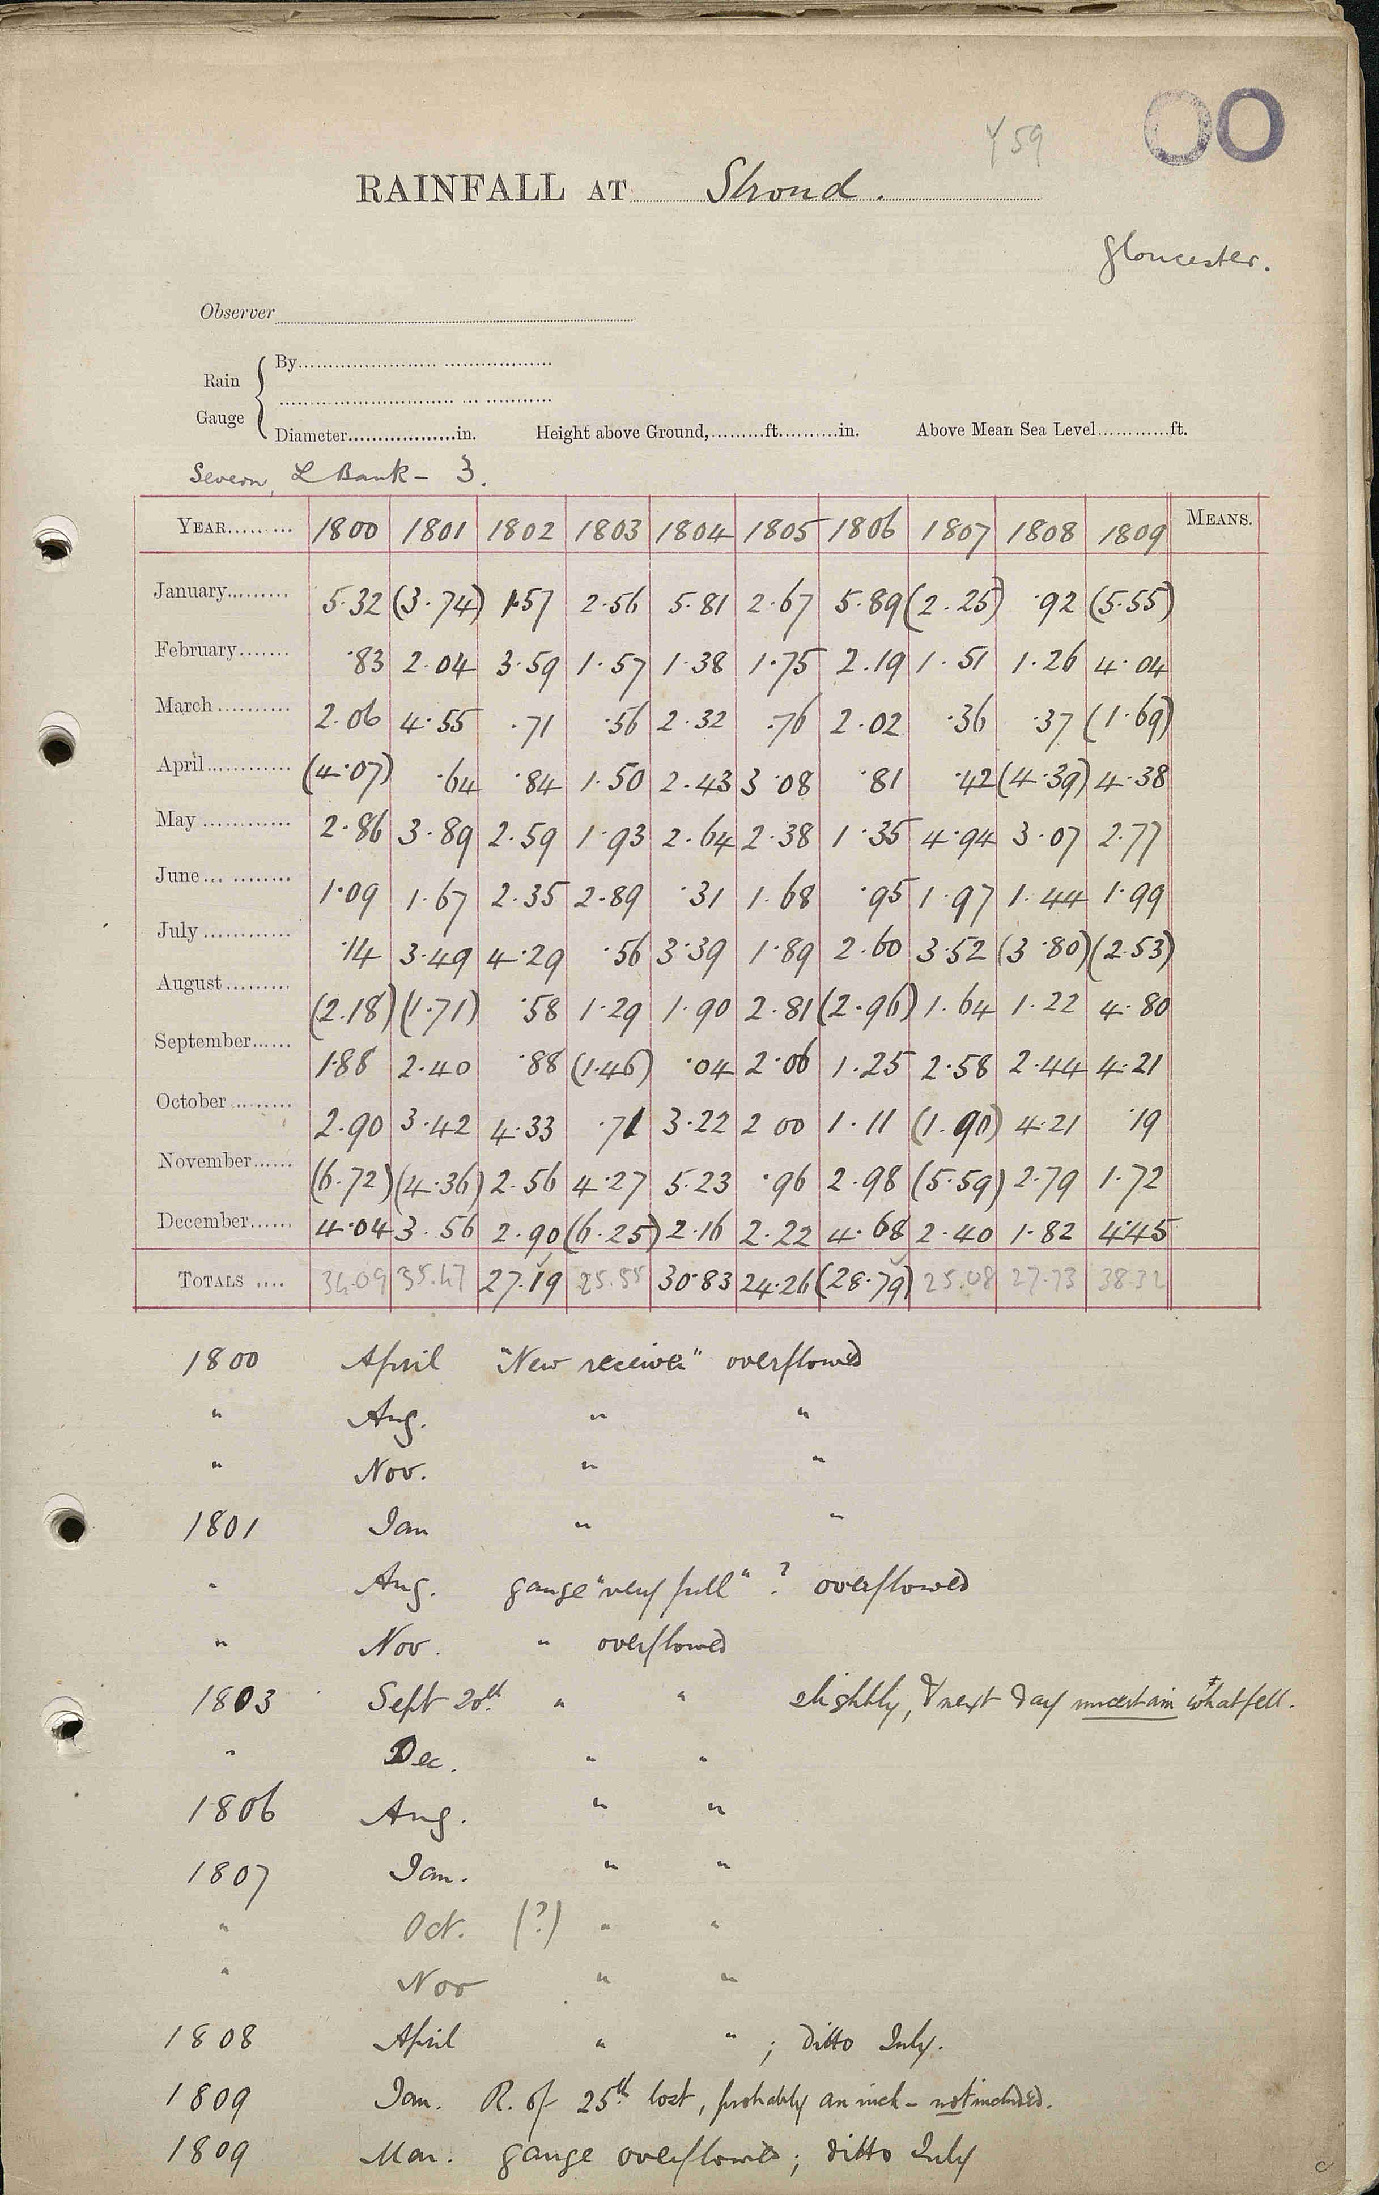 00
Y 59
RAINFALL AT Stroud.
Gloucester.
Observer
Rain Gauge { By
Diameter in. Height above Ground, ft. in. Above Mean Sea Level ft.
Severn, L Bank - 3.
YEAR 1800 1801 1802 1803 1804 1805 1806 1807 1808 1809 MEANS.
January 5.32 (3.74) 1.57 2.56 5.81 2.67 5.89 (2.25) .92 (5.55)
February .83 2.04 3.59 1.57 1.38 1.75 2.19 1.51 1.26 4.04
March 2.06 4.55 .71 .56 2.32 .76 2.02 .36 .37 (1.69)
April (4.07) .64 .84 1.50 2.43 3.08 .81 .42 (4.39) 4.38
May 2.86 3.89 2.59 1.93 2.64 2.38 1.35 4.94 3.07 2.77
June 1.09 1.67 2.35 2.89 .31 1.68 .95 1.97 1.44 1.99
July .14 3.49 4.29 .56 3.39 1.89 2.60 3.52 (3.80) (2.53)
August (2.18) (1.71) .58 1.29 1.90 2.81 (2.96) 1.64 1.22 4.80
September 1.88 2.40 .88 (1.46) .04 2.06 1.25 2.58 2.44 4.21
October 2.90 3.42 4.33 .71 3.22 2 00 1.11 (1.90) 4.21 .19
November (6.72) (4.36) 2.56 4.27 5.23 .96 2.98 (5.59) 2.79 1.72
December 4.04 3.56 2.90 (6.25) 2.16 2.22 4.68 2.40 1.82 4.45
TOTALS 34.09 35.47 27.19 25.55 30.83 24.26 (28.79) 25.08 27.73 38.32
1800 April "New receiver" overflowed
" Aug. " "
" Nov. " "
1801 Jan " "
" Aug. gauge "very full" ? overflowed
" Nov. " overflowed
1803 Sept 20th. " " slightly, & next day uncertain what fell.
" Dec. " "
1806 Aug. " "
1807 Jan. " "
" Oct. (?) " "
" Nov " "
1808 April " " ; ditto July.
1809 Jan. R. of 25th lost, probably an inch - not included.
1809 Mar. gauge overflowed; ditto July